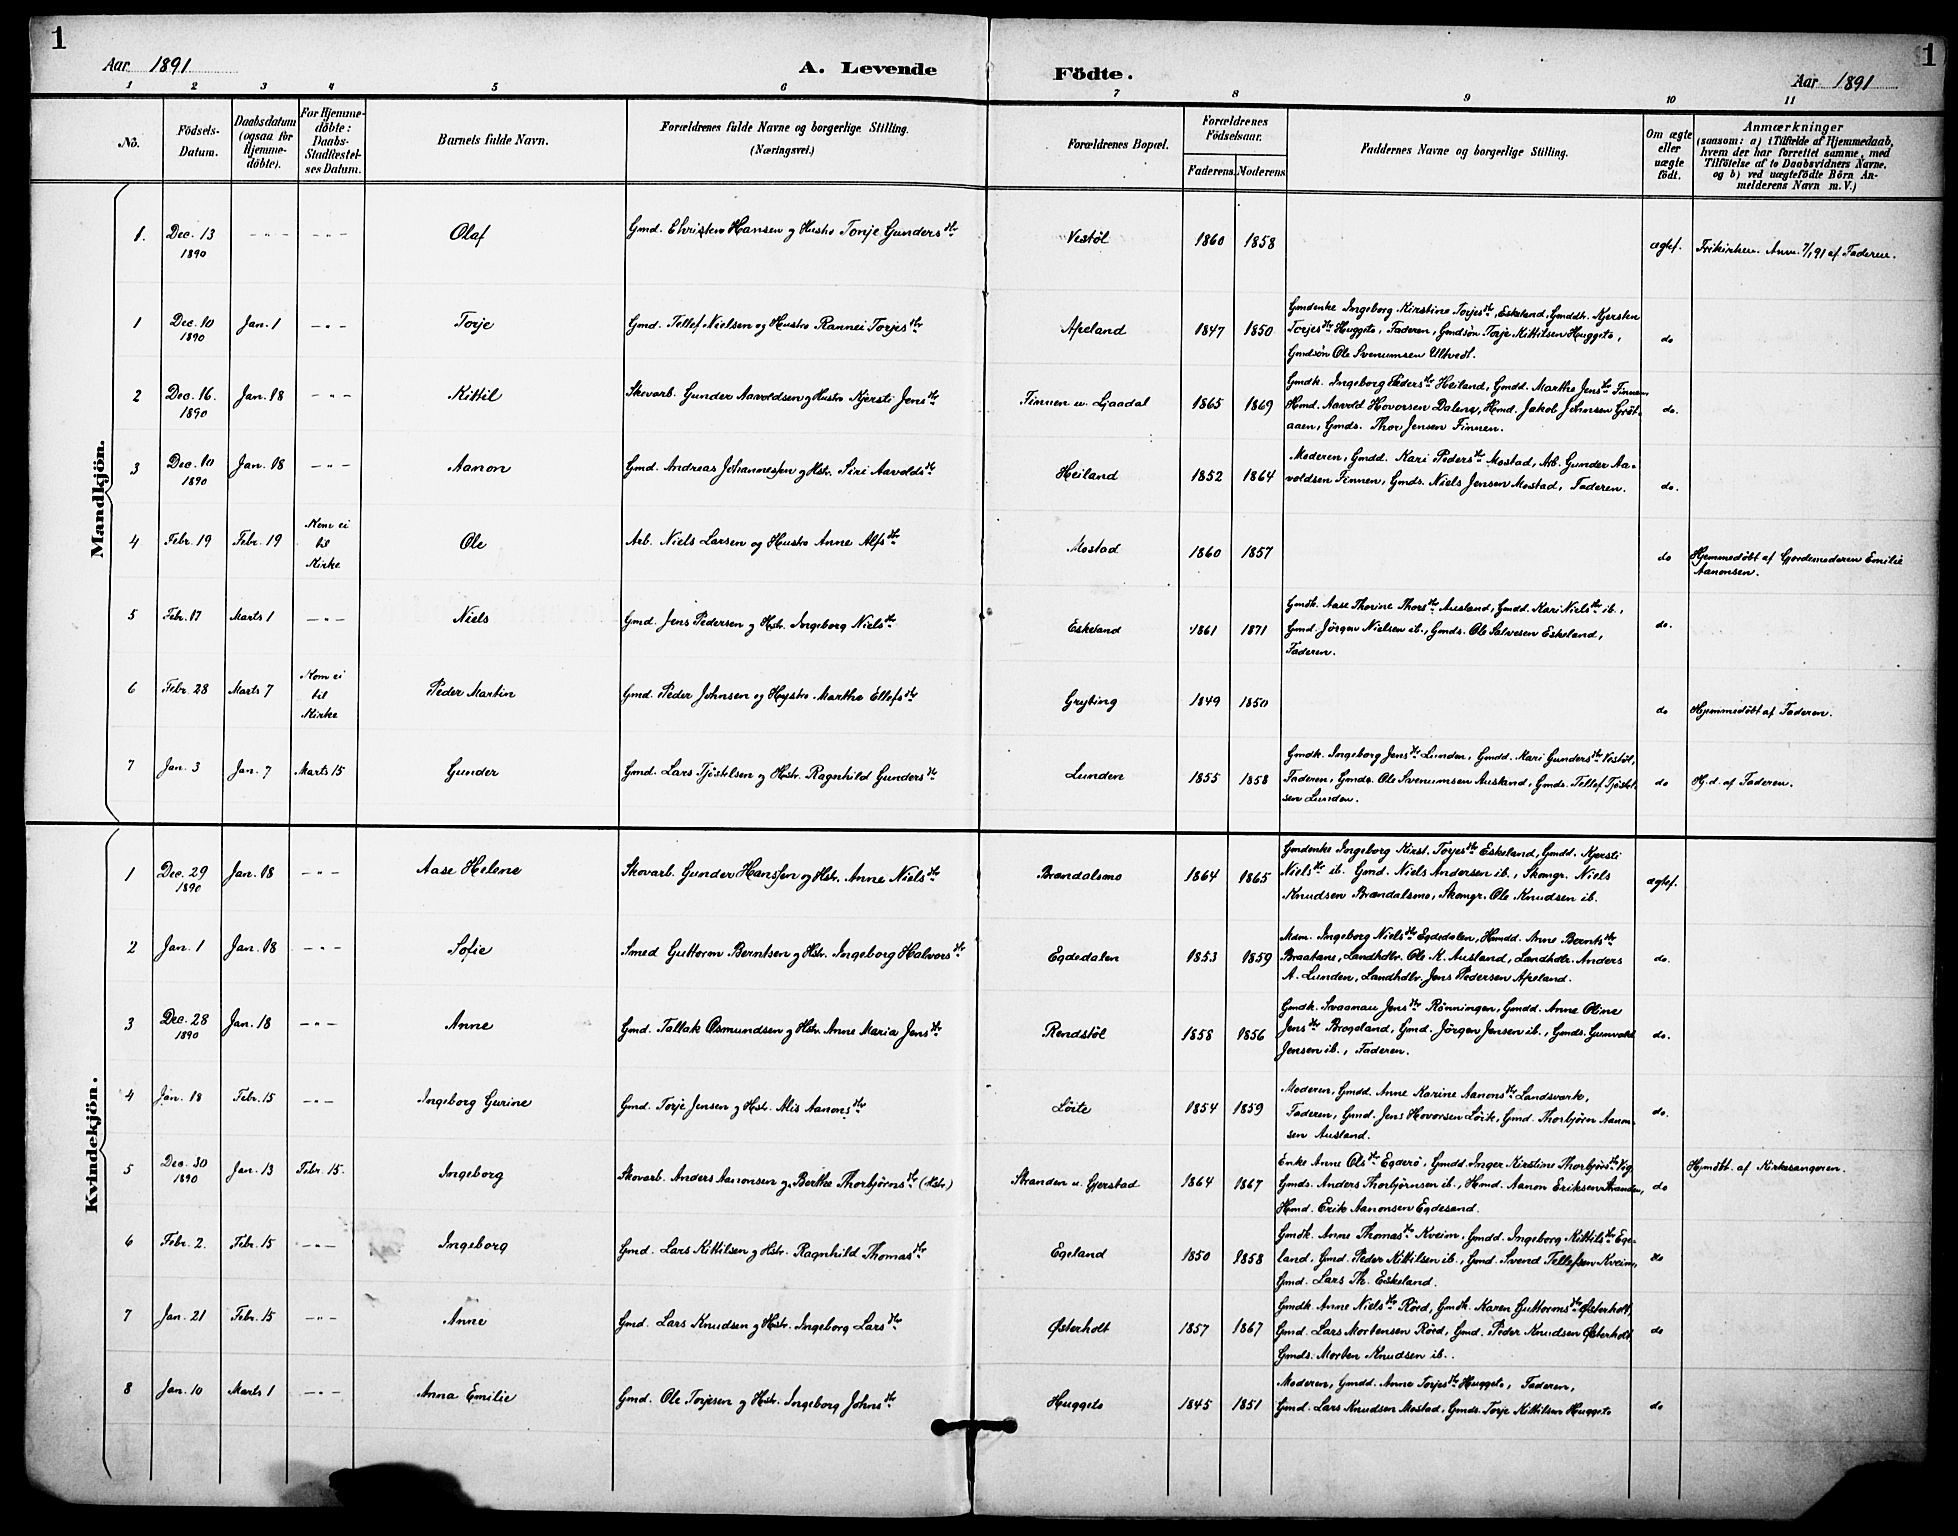 1
1
Aar 1891
A. Levende
Födte.
Aar 1891
1 2 3 4 5 6 7 8 9 10 11
No.
Födsels-Datum.
Daabsdatum (ogsaa for Hjemme-döbte).
For Hjemme-döbte: Daabs-Stadfæstel-ses Datum.
Barnets fulde Navn.
Forældrenes fulde Navne og borgerlige Stilling.
(Næringsvei.)
Forældrenes Bopæl.
Forældrenes Födselsaar.
Faderens Moderens
Faddernes Navne og borgerlige Stilling.
Om ægte eller uægte födt.
Anmærkninger
(saasom: a) i Tilfælde af Hjemmedaab, hvem der har forrettet samme, med Tilföielse af to Daabsvidners Navne, og b) ved uægtefödte Börn An-melderens Navn m. V.)
Mandkjön.
1. Dec. 13 1890 - " - - " - Olaf Gmd. Christen Hansen og Hustro Tonje Gundersdtr Vestöl 1860 1858 ægtef. Frikirken. Anm. 7/1 91 af Faderen.
1 Dec. 10 1890 Jan. 1 - " - Torje Gmd. Tellef Nielsen og Hustro Rannei Torjesdtr Apeland 1847 1850 Gmdenke Ingeborg Kirstine Torjesdtr, Eskeland, Gmddtr. Kjersten
Torjesdtr Huggeto, Faderen, Gmdsön Torje Kittilsen Huggeto,
Gmdsön Ole Svenumsen Ultvedt. do
2 Dec. 16. 1890 Jan. 18 - " - Kittil Skovarb. Gunder Aavoldsen og Hustro Kjersti Jensdtr Finnen u. Ljaadal 1865 1869 Gmdk. Ingeborg Pedersdtr Heiland, Gmdd. Marthe Jensdtr Finnen
Hmd. Aavold Hovorsen Dalene, Hmd. Jakob Johnsen Gröt-
aaen, Gmds. Thor Jensen Finnen. do.
3 Dec. 10 1890 Jan. 18 - " - Aanon Gmd. Andreas Johannessen og Hstr. Siri Aavoldsdtr Heiland 1852 1864 Moderen, Gmdd. Kari Pedersdtr Mostad, Arb. Gunder Aa-
voldsen Finnen, Gmds. Niels Jensen Mostad, Faderen. do.
4 Febr. 19 Febr. 19 Kom ei til Kirke Ole Arb. Niels Larsen og Hustro Anne Alfsdtr Mostad 1860 1857 do Hjemmedöbt af Gjordemoderen Emilie
Aanonsen.
5 Febr. 17 Marts 1 - " - Niels Gmd. Jens Pedersen og Hstr. Ingeborg Nielsdtr Eskeland 1861 1871 Gmdk. Aase Thorine Thorsdtr Ausland, Gmdd. Kari Nielsdtr ib.,
Gmd. Jörgen Nielsen ib., Gmds. Ole Salvesen Eskeland,
Faderen. do.
6 Febr. 28 Marts 7 Kom ei til Kirke Peder Martin Gmd. Peder Johnsen og Hustro Marthe Ellefsdtr Gryting 1849 1850 do Hjemmedöbt af Faderen.
7 Jan. 3 Jan. 7 Marts 15 Gunder Gmd. Lars Tjöstelsen og Hstr. Ragnhild Gundersdtr Lunden 1855 1858 Gmdk. Ingeborg Jensdtr Lunden, Gmdd. Mari Gundersdtr Vestöl,
Faderen, Gmds. Ole Svenumsen Ausland, Gmds. Tellef Tjöstel-
sen Lunden. do H.d. af Faderen.
Kvindekjön.
1 Dec. 29 1890 Jan. 18 - " - Aase Helene Skovarb. Gunder Hanssen og Hstr. Anne Nielsdtr Brændalsmo 1864 1865 Gmdenke Ingeborg Kirst. Torjesdtr Eskeland, Gmdd. Kjersti
Nielsdtr ib. Gmd. Niels Andersen ib., Skomgr. Niels
Knudsen Brændalsmo, Skomgr. Ole Knudsen ib. ægtef.
2 Jan. 1 Jan. 18 - " - Sofie Smed Guttorm Berntsen og Hstr. Ingeborg Halvorsdtr Egdedalen 1853 1859 Mdm. Ingeborg Nielsdtr Egdedalen, Hmdd. Anne Berntsdtr
Braatane, Landhdlr. Ole K. Ausland, Landhdlr. Anders
A. Lunden, Landhdlr. Jens Pedersen Apeland. do.
3 Dec. 28 1890 Jan. 18 - " - Anne Gmd. Tallak Osmundsen og Hstr. Anne Maria Jensdtr Rendstöl 1858 1856 Gmdk. Svaanau Jensdtr Rönningen, Gmdd. Anne Oline
Jensdtr Brogeland, Gmd. Jörgen Jensen ib., Gmds. Gunvald
Jensen ib., Faderen. do.
4 Jan. 18 Febr. 15 - " - Ingeborg Gurine Gmd. Torje Jensen og Hstr. Alis Aanonsdtr Löite 1854 1859 Moderen, Gmdd. Anne Karine Aanonsdtr Landsverk,
Faderen, Gmd. Jens Hovorsen Löite, Gmd. Thorbjörn Aanon-
sen Ausland. do.
5 Dec. 30 1890 Jan. 13 Febr. 15. Ingeborg Skovarb. Anders Aanonsen og Berthe Thorbjörnsdtr (Hstr.) Stranden u. Gjerstad 1864 1867 Enke Anne Olsdtr Egderö, Gmdd. Inger Kirstine Thorbjörnsdtr Vig
Gmds. Anders Thorbjörnsen ib., Hmd. Aanon Eriksen Stranden,
Hmd. Erik Aanonsen Egdesand. do Hjmdöbt. af Kirkesangeren.
6 Febr. 2. Febr. 15 - " - Ingeborg Gmd. Lars Kittilsen og Hstr. Ragnhild Thomasdtr Egeland 1850 1858 Gmdk. Anne Thomasdtr Kveim, Gmdd. Ingeborg Kittilsdtr Ege-
land, Gmd. Peder Kittilsen ib., Gmd. Svend Tellefsen Kveim,
Gmd. Lars Th. Eskeland. do
7 Jan. 21 Febr. 15 - " - Anne Gmd. Lars Knudsen og Hstr. Ingeborg Larsdtr Østerholt 1857 1867 Gmdk. Anne Nielsdtr Röed, Gmdk. Karen Guttormsdtr Østerholt,
Gmd. Lars Mortensen Röed, Gmd. Peder Knudsen Østerholt
Gmds. Morten Knudsen ib. do
8 Jan. 10 Marts 1 - " - Anna Emilie Gmd. Ole Torjesen og Hstr. Ingeborg Johnsdtr Huggeto 1845 1851 Moderen, Gmdd. Anne Torjesdtr Huggeto, Faderen,
Gmd. Lars Knudsen Mostad, Gmds. Torje Kittilsen Huggeto do